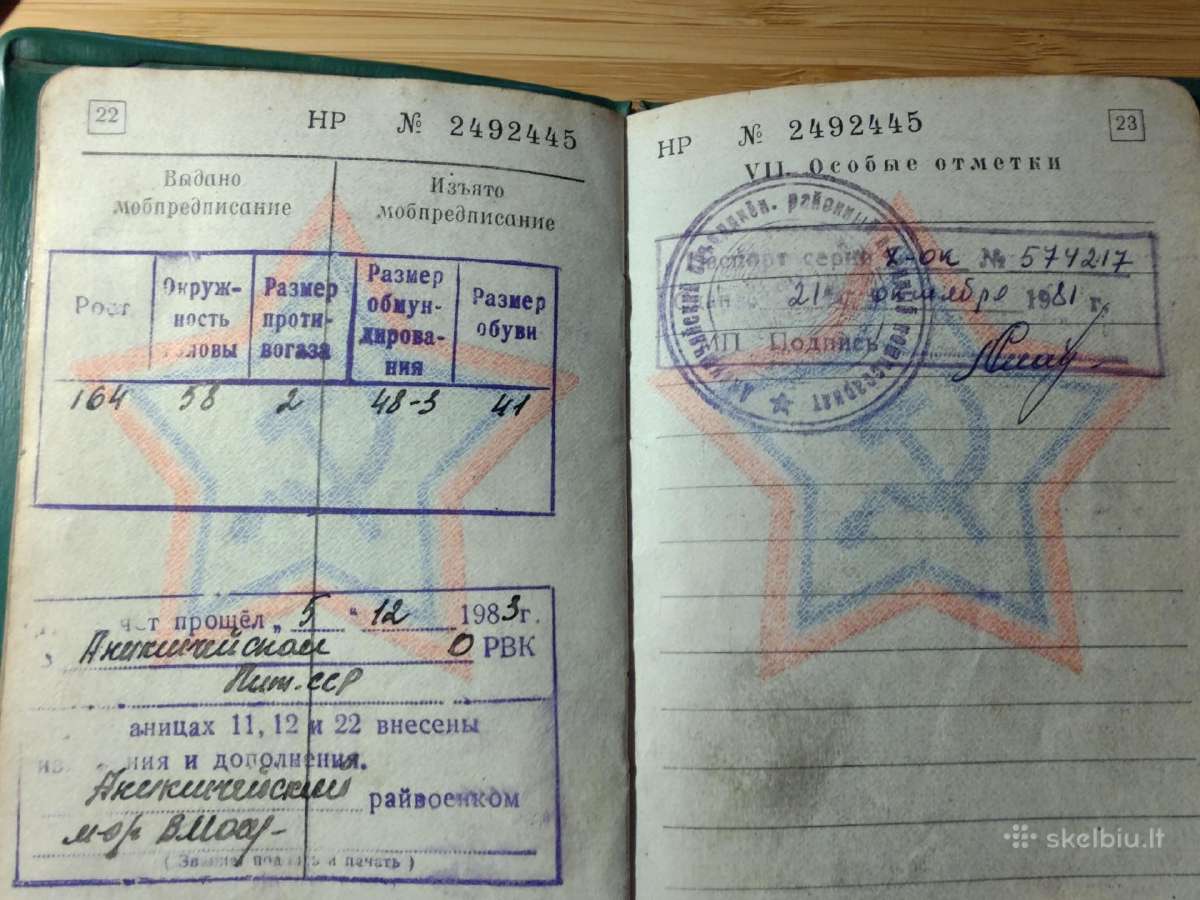 22
НР № 2492445
Выдано мобпредписание
Изъято мобпредписание
Рост
Окруж-
ность
головы
Размер
проти-
вогаза
Размер
обмун-
дирова-
ния
Размер
обуви
164 58 2 48-3 41
чёт прошёл „ 5 " 12 1983г.
О РВК
Лит.ССР
аницах 11, 12 и 22 внесены
ния и дополнения.
райвоенком
м-ор
( Звание, подпись и печать )
23
НР № 2492445
VII. Особые отметки
Паспорт серии X-ок № 574217
21 октября 1981 г.
МП Подпись
skelbiu.lt